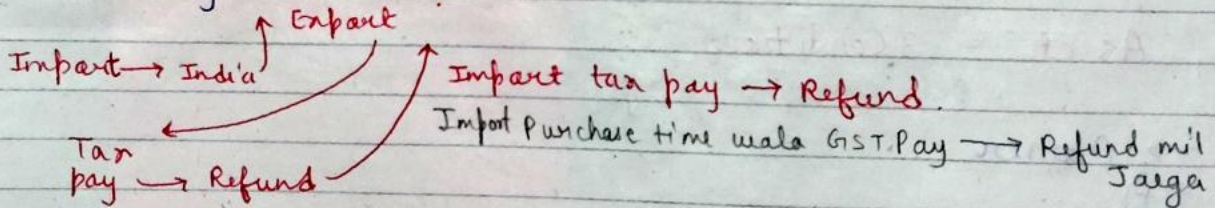 Export
Import → India
Import tax pay → Refund.
Import Purchase time wala GST Pay → Refund mil
Jaega
Tax
pay → Refund